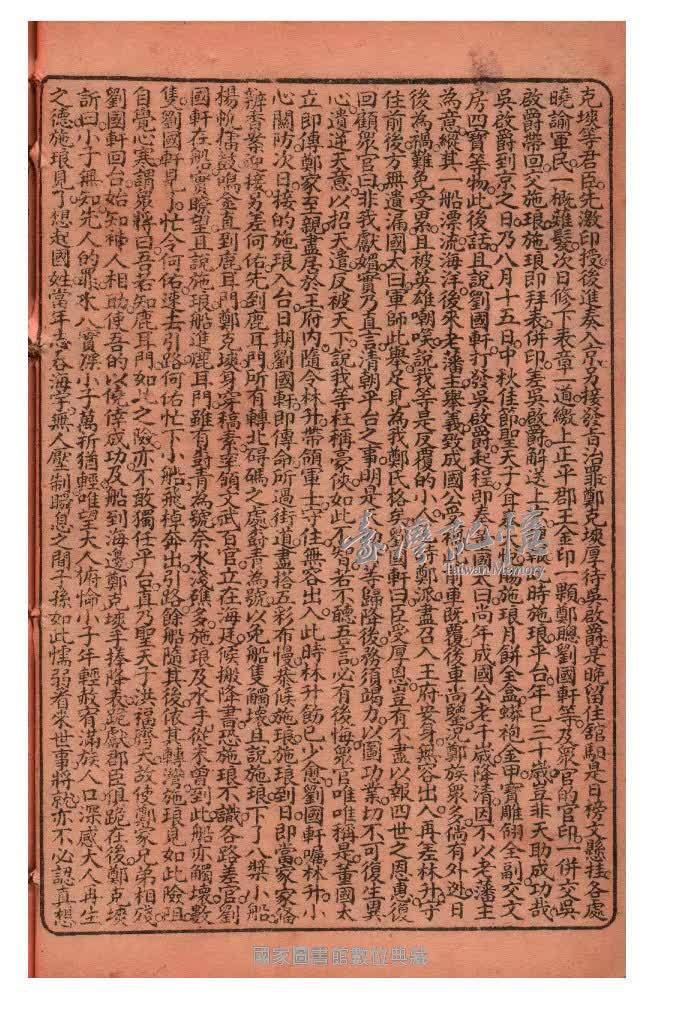 克塽等君臣先激印授後進奏入京另接發旨治罪鄭克塽厚待吳啟爵是晚留住舘馹是日榜文懸挂各處
曉諭軍民一概雉髮次日修下表章一道繳上正平郡王金印一顆鄭聰劉國軒等及眾官的官印一併交吳
啟爵帶回交施琅施琅即拜表併印差吳啟爵解送上京報捷時施琅平台年已三十歲豈非天助成功哉
吳啟爵到京之日乃八月十五日中秋佳節聖天子賜施琅月餅全盒蟒袍金甲寶雕翎全副交文
房四寶等物此後話且說劉國軒打發吳啟爵起程即奏國太曰尚年成國公老千歲降清因不以老藩主
為意縱其一船漂流海洋後來老藩主舉義致成國公受禍此前車既覆後車尚鑒況鄭族眾多倘有外逊日
後為禍難免受累且被英雄嘲唉說我等是反覆的小人鄭派盡召入王府安身無容出入再差林升守
住前後方無遺漏國太曰軍師此舉足見為我鄭氏格矣劉國軒曰臣受厚恩豈有不盡以報四世之恩惠復
回顧眾官曰非我獻媚實乃直言清朝平台之事明是等歸降後務須竭力以圖功業切不可復生異
心遺逆天意以招天遣反被天下說我等枉稱豪俠如此不智若不聽吾言必有後悔眾官唯唯稱是董國太
立即傳鄭家至親盡居於王府內隨令林升帶領軍士守住無容出入此時林升筋已少愈劉國軒嘱林升小
心關防次日接的施琅入台日期劉國軒即傳命所過街道盡搭五彩布幔恭候施琅施琅到日即當家家俻
辦香案迎接另差何佑先到鹿耳門所有轉北碍碼之處尉青為號以免船隻觸壞且說施琅下了八槳小船
揚帆偹鼓鳴金直到鹿耳門鄭克塽身穿稿素率領文武百官立在海廷候搬降書恐施琅不識各路差官劉
國軒在船實瞭望且說施琅船進鹿耳門雖有尉青為號奈水淺礁多施琅及水手從來曾到此船亦觸壞數
隻劉國軒見了忙令何佑速去引路何佑忙下小船飛棹奔出引路餘船隨其後依其轉灣施琅見如此險阻
自覺心寒謂眾將曰吾若知鹿耳門如此之險亦不敢獨任平台真乃聖天子洪福齊天故使鄭家兄弟相殘
劉國軒回台始知神人相助使吾的以僥倖成功及船到海邊鄭克塽手捧降表跪獻郡臣俱跪在後鄭克塽
訴曰小子無知先人的罪水八實深小子萬祈猶輕唯望大人俯憐小子年輕赦宥滿族人口深感大人再生
之德施琅見了想起國姓當年志吞海宇無人壓制瞬息之間子孫如此懦弱看來世事將就亦不必認真想
臺灣記憶
Taiwan Memory
國家圖書館數位典藏